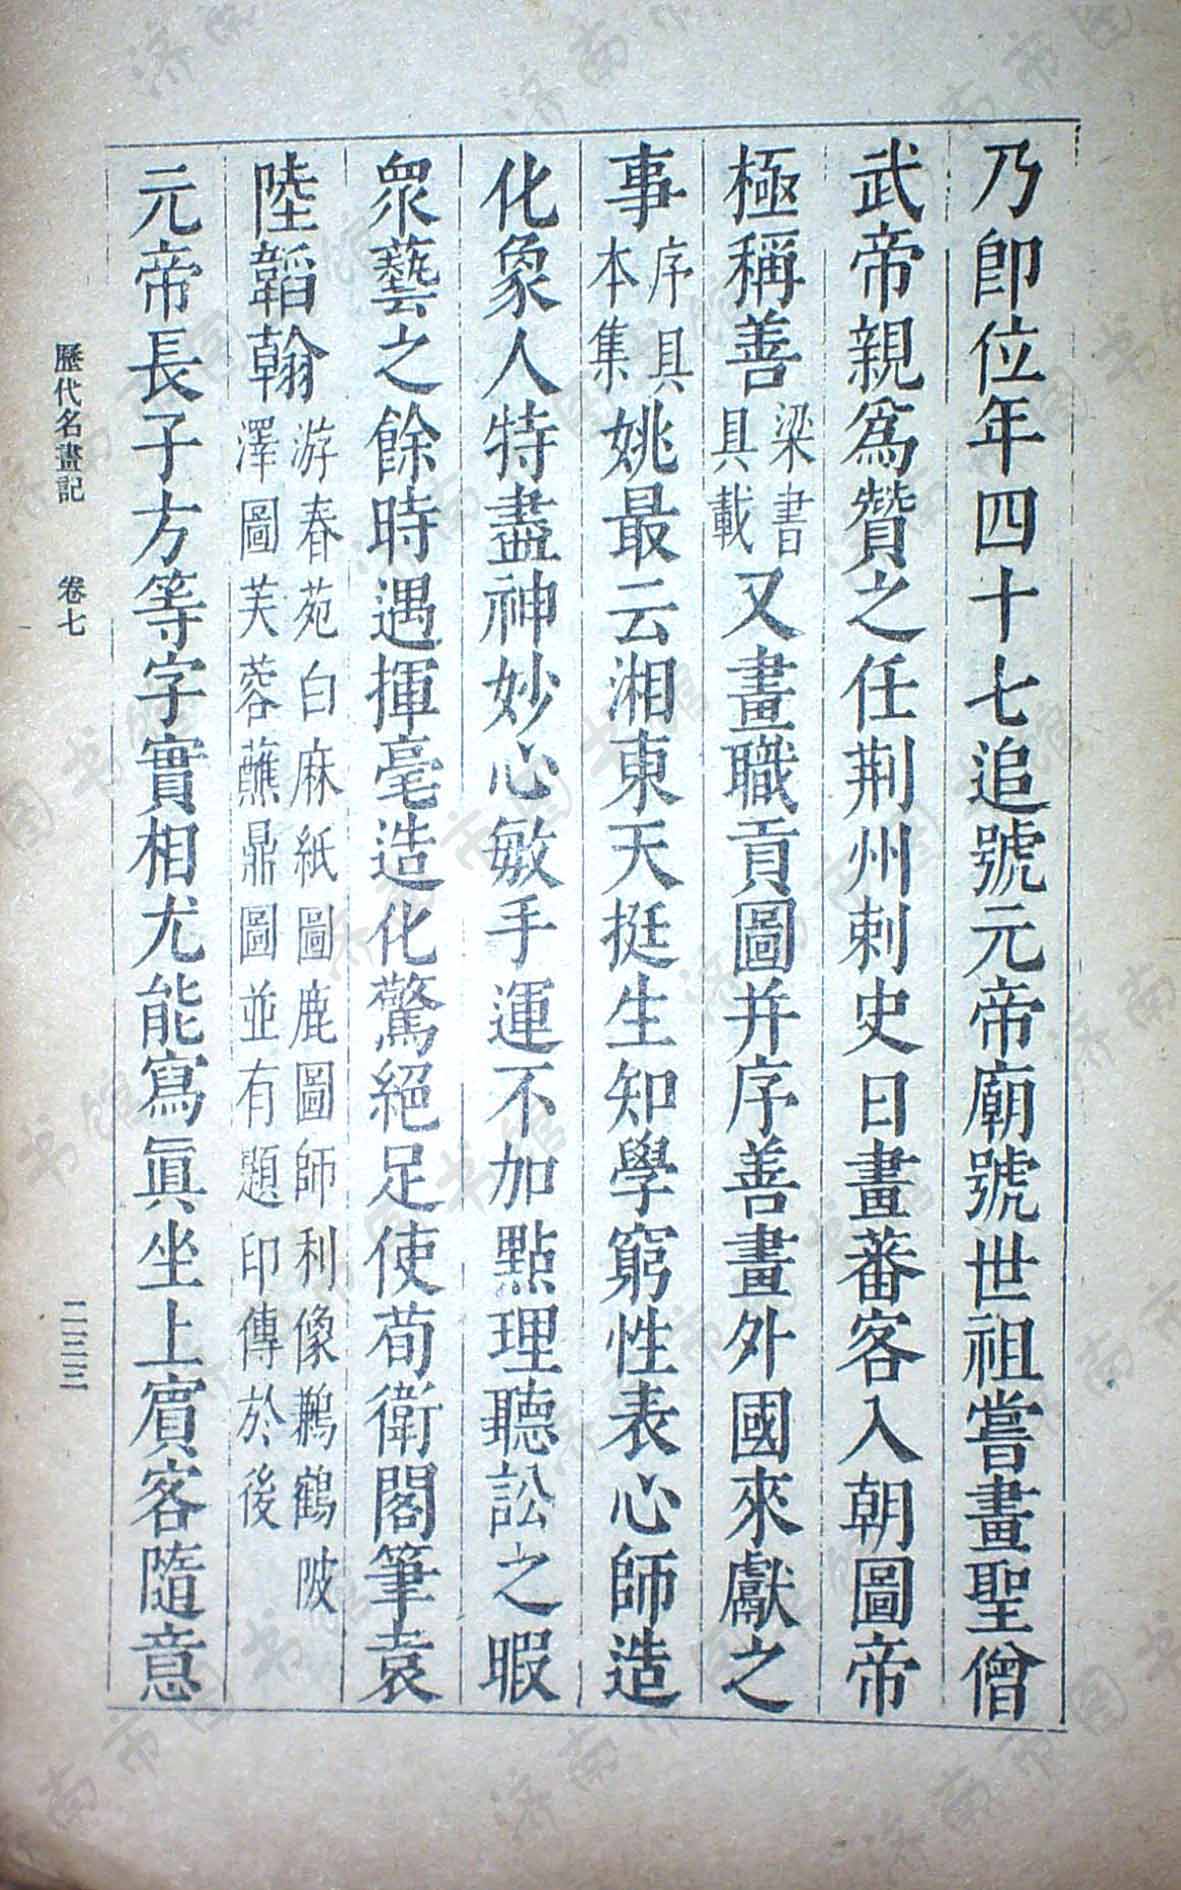 乃即位年四十七追號元帝廟號世祖嘗畫聖僧
武帝親爲贊之任荆州刺史日畫蕃客入朝圖帝
極稱善梁書具載又畫職貢圖并序善畫外國來獻之
事序具本集姚最云湘東天挺生知學窮性表心師造
化象人特盡神妙心敏手運不加點理聽訟之暇
衆藝之餘時遇揮毫造化驚絕足使荀衛閣筆袁
陸韜翰游春苑白麻紙圖鹿圖師利像鶼鶴陂澤圖芙蓉蘸鼎圖並有題印傳於後
元帝長子方等字實相尤能寫眞坐上賓客隨意
歷代名畫記 卷七 二三三
济南市图书馆